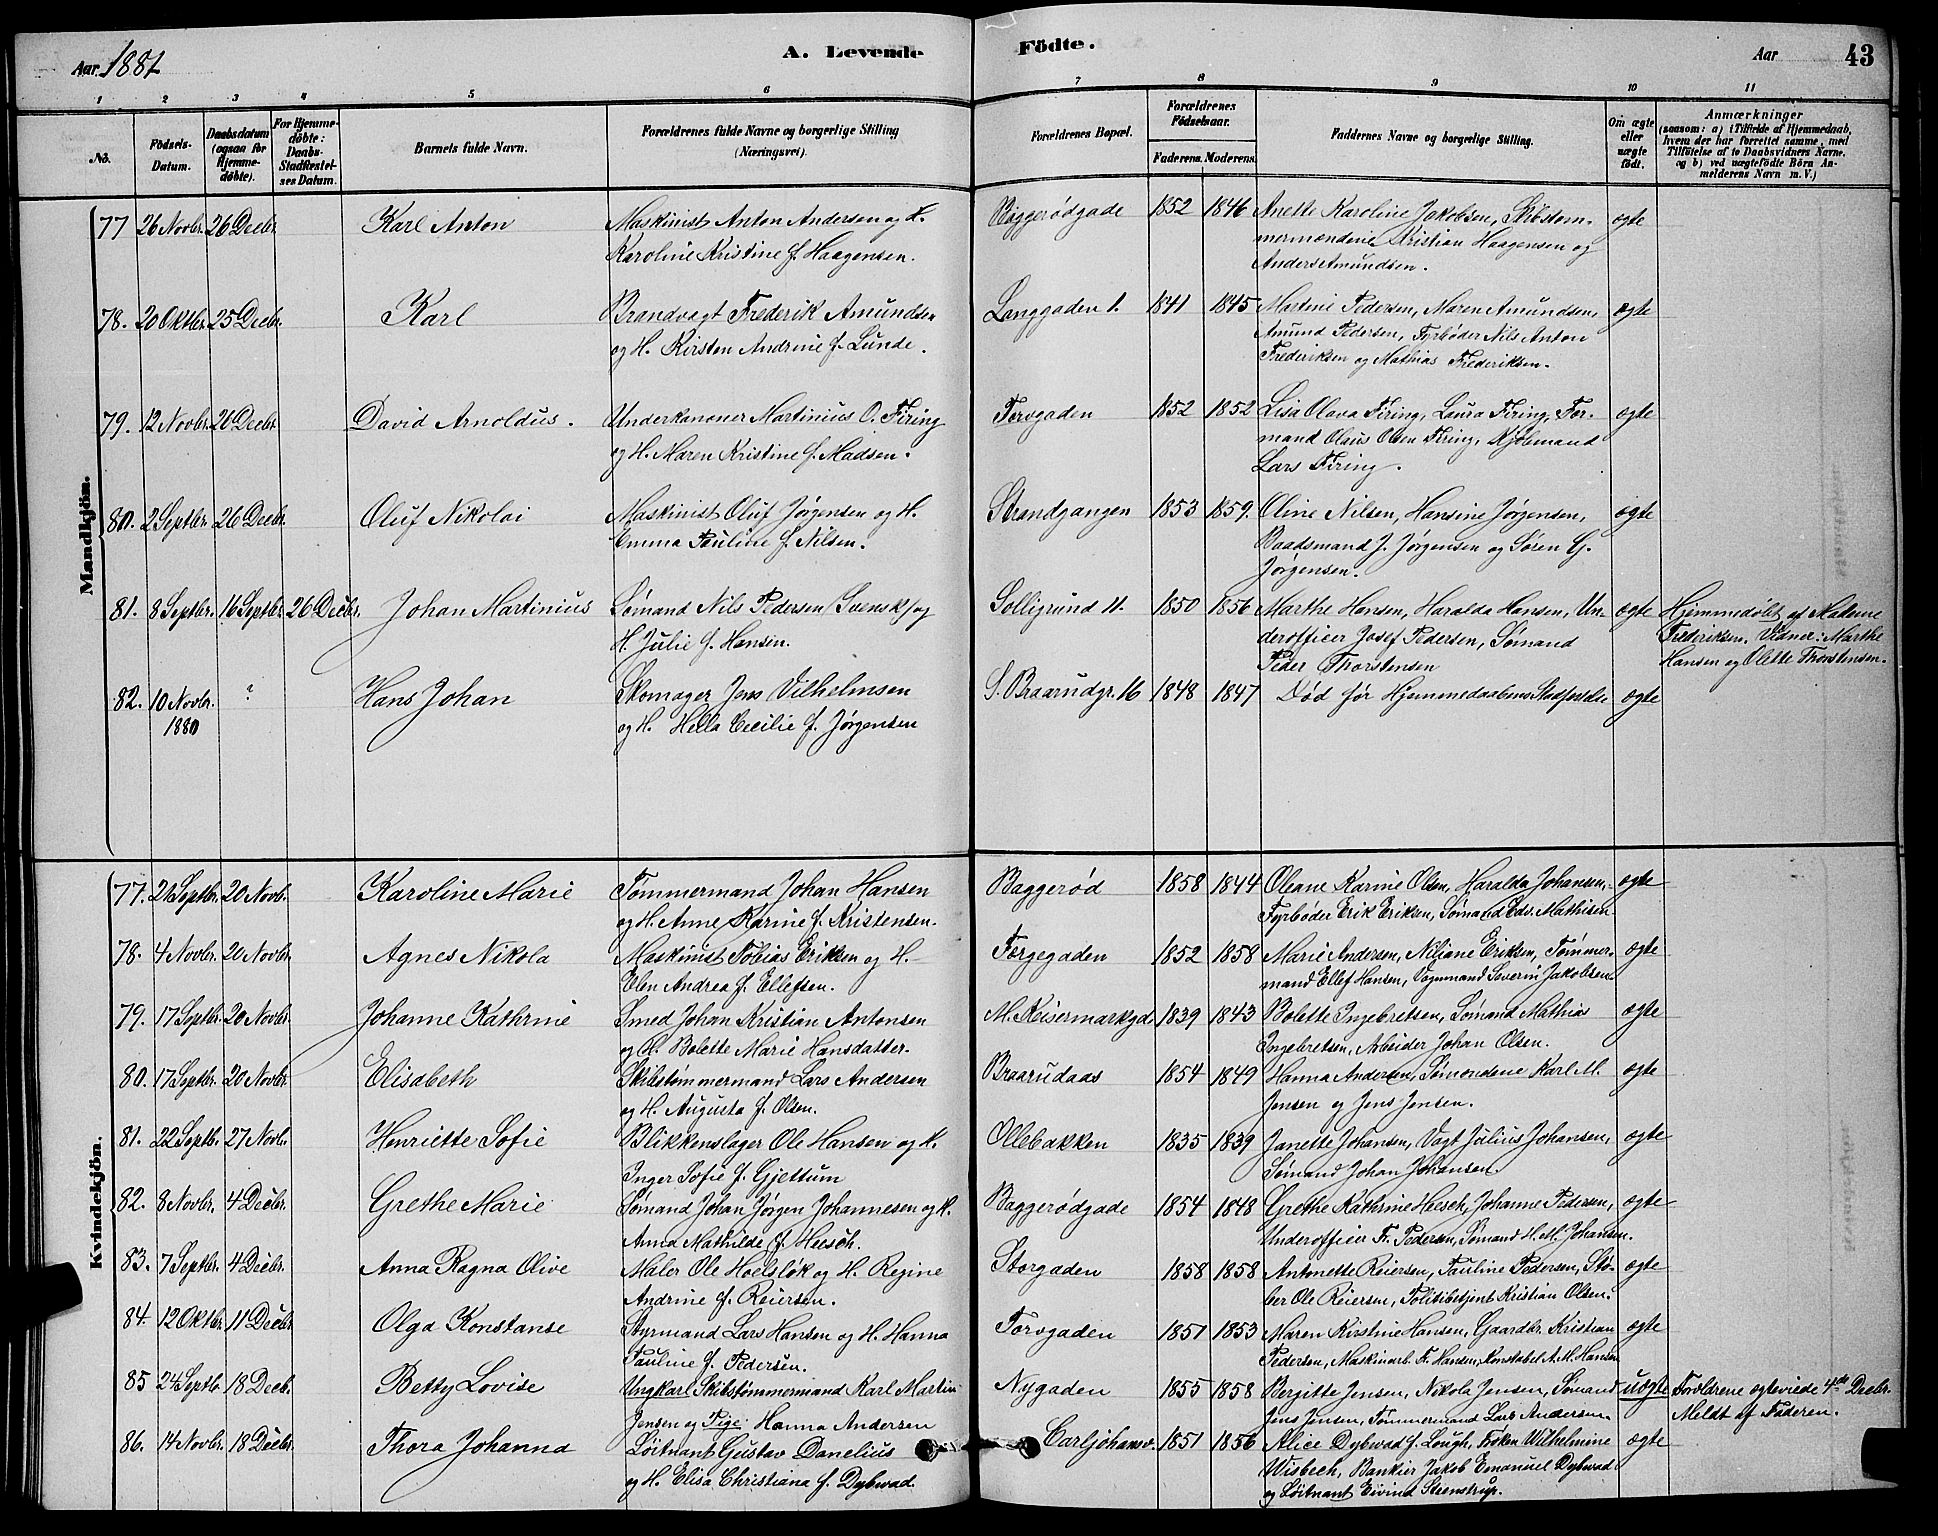 Aar 1881
A. Levende
Födte.
Aar
43
1 2 3 4 5 6 7 8 9 10 11
No.
Födsels-Datum.
Daabsdatum (ogsaa for Hjemmedöbte).
For Hjemmedöbte: Daabs-Stadfæstelses Datum.
Barnets fulde Navn.
Forældrenes fulde Navne og borgerlige Stilling (Næringsvei).
Forældrenes Bopæl.
Forældrenes Födselsaar.
Faderens. Moderens.
Faddernes Navne og borgerlige Stilling.
Om ægte eller uægte födt.
Anmærkninger
(saasom: a) i Tilfælde af Hjemmedaab, hvem der har forrettet samme, med Tilföielse af to Daabsvidners Navne, og b) ved uægtefödte Börn Anmelderens Navn m. V.)
Mandkjön.
77 26 Novbr. 26 Decbr. Karl Anton Maskinist Anton Andersen og H. Baggerødgade 1852 1846 Anette Karoline Jakobsen, Skibstom- ægte
Karoline Kristine f. Haagensen. mermændene Kristian Haagensen og
Anders Amundsen.
78. 20 Oktbr. 25 Decbr. Karl Brandvagt Frederik Amundsen Langgaden 1. 1841 1845 Martine Pedersen, Maren Amundsen, ægte
og H. Kirsten Andrine f. Lunde. Amund Pedersen, Fyrbøder Nils Anton
Frederiksen og Mathias Frederiksen.
79. 12 Novbr. 26 Decbr. David Arnoldus. Underkanoner Martinius O. Firing Torvgaden 1852 1852 Lisa Olava Firing, Laura Firing, For- ægte
og H. Maren Kristine f. Madsen. mand Olaus Olsen Firing, Kjølemand
Lars Firing.
80. 2 Septbr. 26 Decbr. Oluf Nikolai Maskinist Oluf Jørgensen og H. Strandgangen 1853 1859. Oline Nilsen, Hansine Jørgensen, ægte
Emma Pauline f. Nilsen. Baadsmand J. Jørgensen og Søren G.
Jørgensen.
81. 8 Septbr. 16 Septbr. 26 Decbr. Johan Martinius Sømand Nils Pedersen (Svensk) og Solligrund 11. 1850 1856 Marthe Hansen, Haralda Hansen, Un- ægte Hjemmedøbt af Madame
H. Julie f. Hansen. derofficer Josef Pedersen, Sømand Frederiksen. Vidner: Marthe
Peder Thorstensen Hansen og Olette Thorstensen.
82. 10 Novbr. ? Hans Johan Skomager Jens Vilhelmsen S. Braarudgr. 16 1848 1847 Død før Hjemmedaabens Stadfæstelse ægte
1880 og H. Hella Cecilie f. Jørgensen
Kvindekjön.
77. 21 Septbr. 20 Novb. Karoline Marie Tømmermand Johan Hansen Baggerød 1858 1844 Oleane Karine Olsen, Haralda Johansen, ægte
og H. Anne Karine f. Kristensen. Fyrbøder Erik Eriksen, Sømand Edv. Mathisen
78. 4 Novbr. 20 Novbr. Agnes Nikola Maskinist Tobias Eriksen og H. Torgegaden 1852 1858 Marie Andersen, Niliane Eriksen, Tømmer- ægte
Elen Andrea f. Ellefsen. mand Ellef Hansen, Vognmand Severin Jakobsen
79. 17 Septbr. 20 Novbr. Johanne Kathrine Smed Johan Kristian Antonsen M. Keisermarkgd. 1839 1843 Bolette Ingebretsen, Sømand Mathias ægte
og H. Bolette Marie Hansdatter. Ingebretsen, Arbeider Johan Olsen.
80. 17 Septbr. 20 Novbr. Elisabeth Skibstømmermand Lars Andersen Braarudaas 1854 1849 Hanna Andersen, Sømændene Karl M. ægte
og H. Augusta f. Olsen. Jensen og Jens Jensen.
81. 22 Septb. 27 Novb. Henriette Sofie Blikkenslager Ole Hansen og H. Ollebakken 1835 1839 Janette Johansen, Vagt Julius Johansen, ægte
Inger Sofie f. Gjettum Sømand Johan Johansen.
82. 8 Novbr. 4 Decbr. Grethe Marie Sømand Johan Jørgen Johannesen og H. Baggerødgade 1854 1848 Grethe Kathrine Heesch, Johanne Pedersen, ægte
Anna Mathilde f. Heesch. Underofficer F. Pedersen, Sømand H. M. Johansen.
83. 7 Septbr. 4 Decbr. Anna Ragna Olive Maler Ole Hoelsløk og H. Regine Storgaden 1858 1858 Antonette Reiersen, Pauline Pedersen, Stø- ægte
Andrine f. Reiersen. ber Ole Reiersen, Politibetjent Kristian Olsen.
84. 12 Oktbr. 11 Decbr. Olga Konstanse Styrmand Lars Hansen og H. Hanna Torvgaden 1851 1853 Maren Kirstine Hansen, Gaardbr. Kristian ægte
Pauline f. Pedersen. Pedersen, Maskinarb. F. Hansen, Konstabel A. M. Hansen
85 24 Septb. 18 Decb. Betty Lovise Ungkarl Skibstømmermand Karl Martin Nygaden 1855 1858 Bergitte Jensen, Nikola Jensen, Sømand uægte Forældrene ægteviede 4de Decbr.
Jensen og Pige Hanna Andersen Jens Jensen, Tømmermand Lars Andersen. Meldt af Faderen.
86. 14 Novbr. 18 Decbr. Thora Johanna Løitnant Gustav Danelius Carljohansv. 1851 1856 Alice Dybwad f. Lough, Frøken Wilhelmine ægte
og H. Elisa Christiana f. Dybwad. Wisbech, Bankier Jakob Emanuel Dybwad
og Løitnant Eivind Steenstrup.